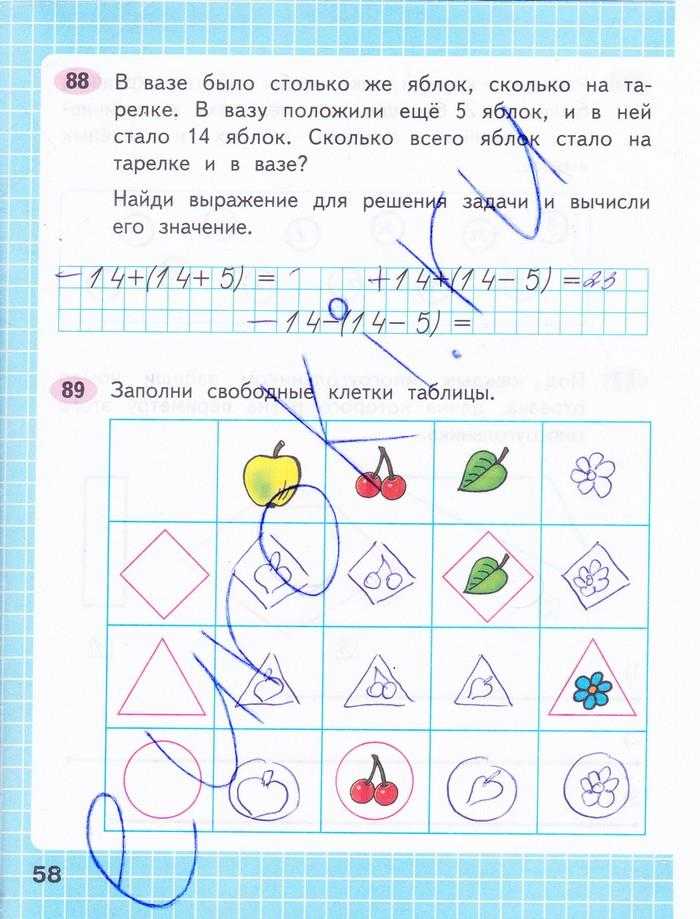 88 В вазе было столько же яблок, сколько на та-
релке. В вазу положили ещё 5 яблок, и в ней
стало 14 яблок. Сколько всего яблок стало на
тарелке и в вазе?
Найди выражение для решения задачи и вычисли
его значение.
− 14+(14+5) = + 14+(14−5) =23
− 14−(14−5) =
89 Заполни свободные клетки таблицы.
58